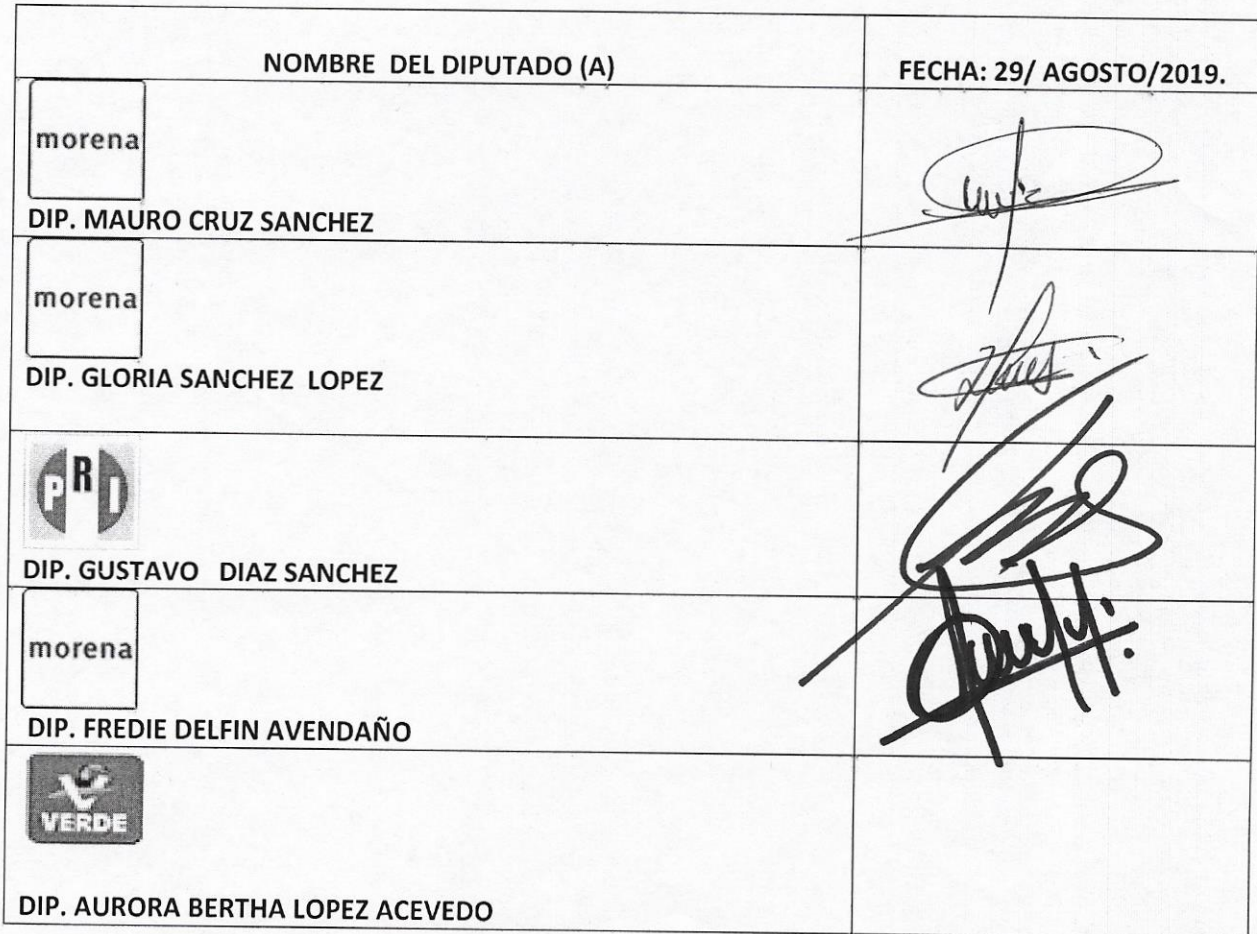 NOMBRE DEL DIPUTADO (A)
FECHA: 29/ AGOSTO/2019.
morena
DIP. MAURO CRUZ SANCHEZ
morena
DIP. GLORIA SANCHEZ LOPEZ
PRI
DIP. GUSTAVO DIAZ SANCHEZ
morena
DIP. FREDIE DELFIN AVENDAÑO
VERDE
DIP. AURORA BERTHA LOPEZ ACEVEDO